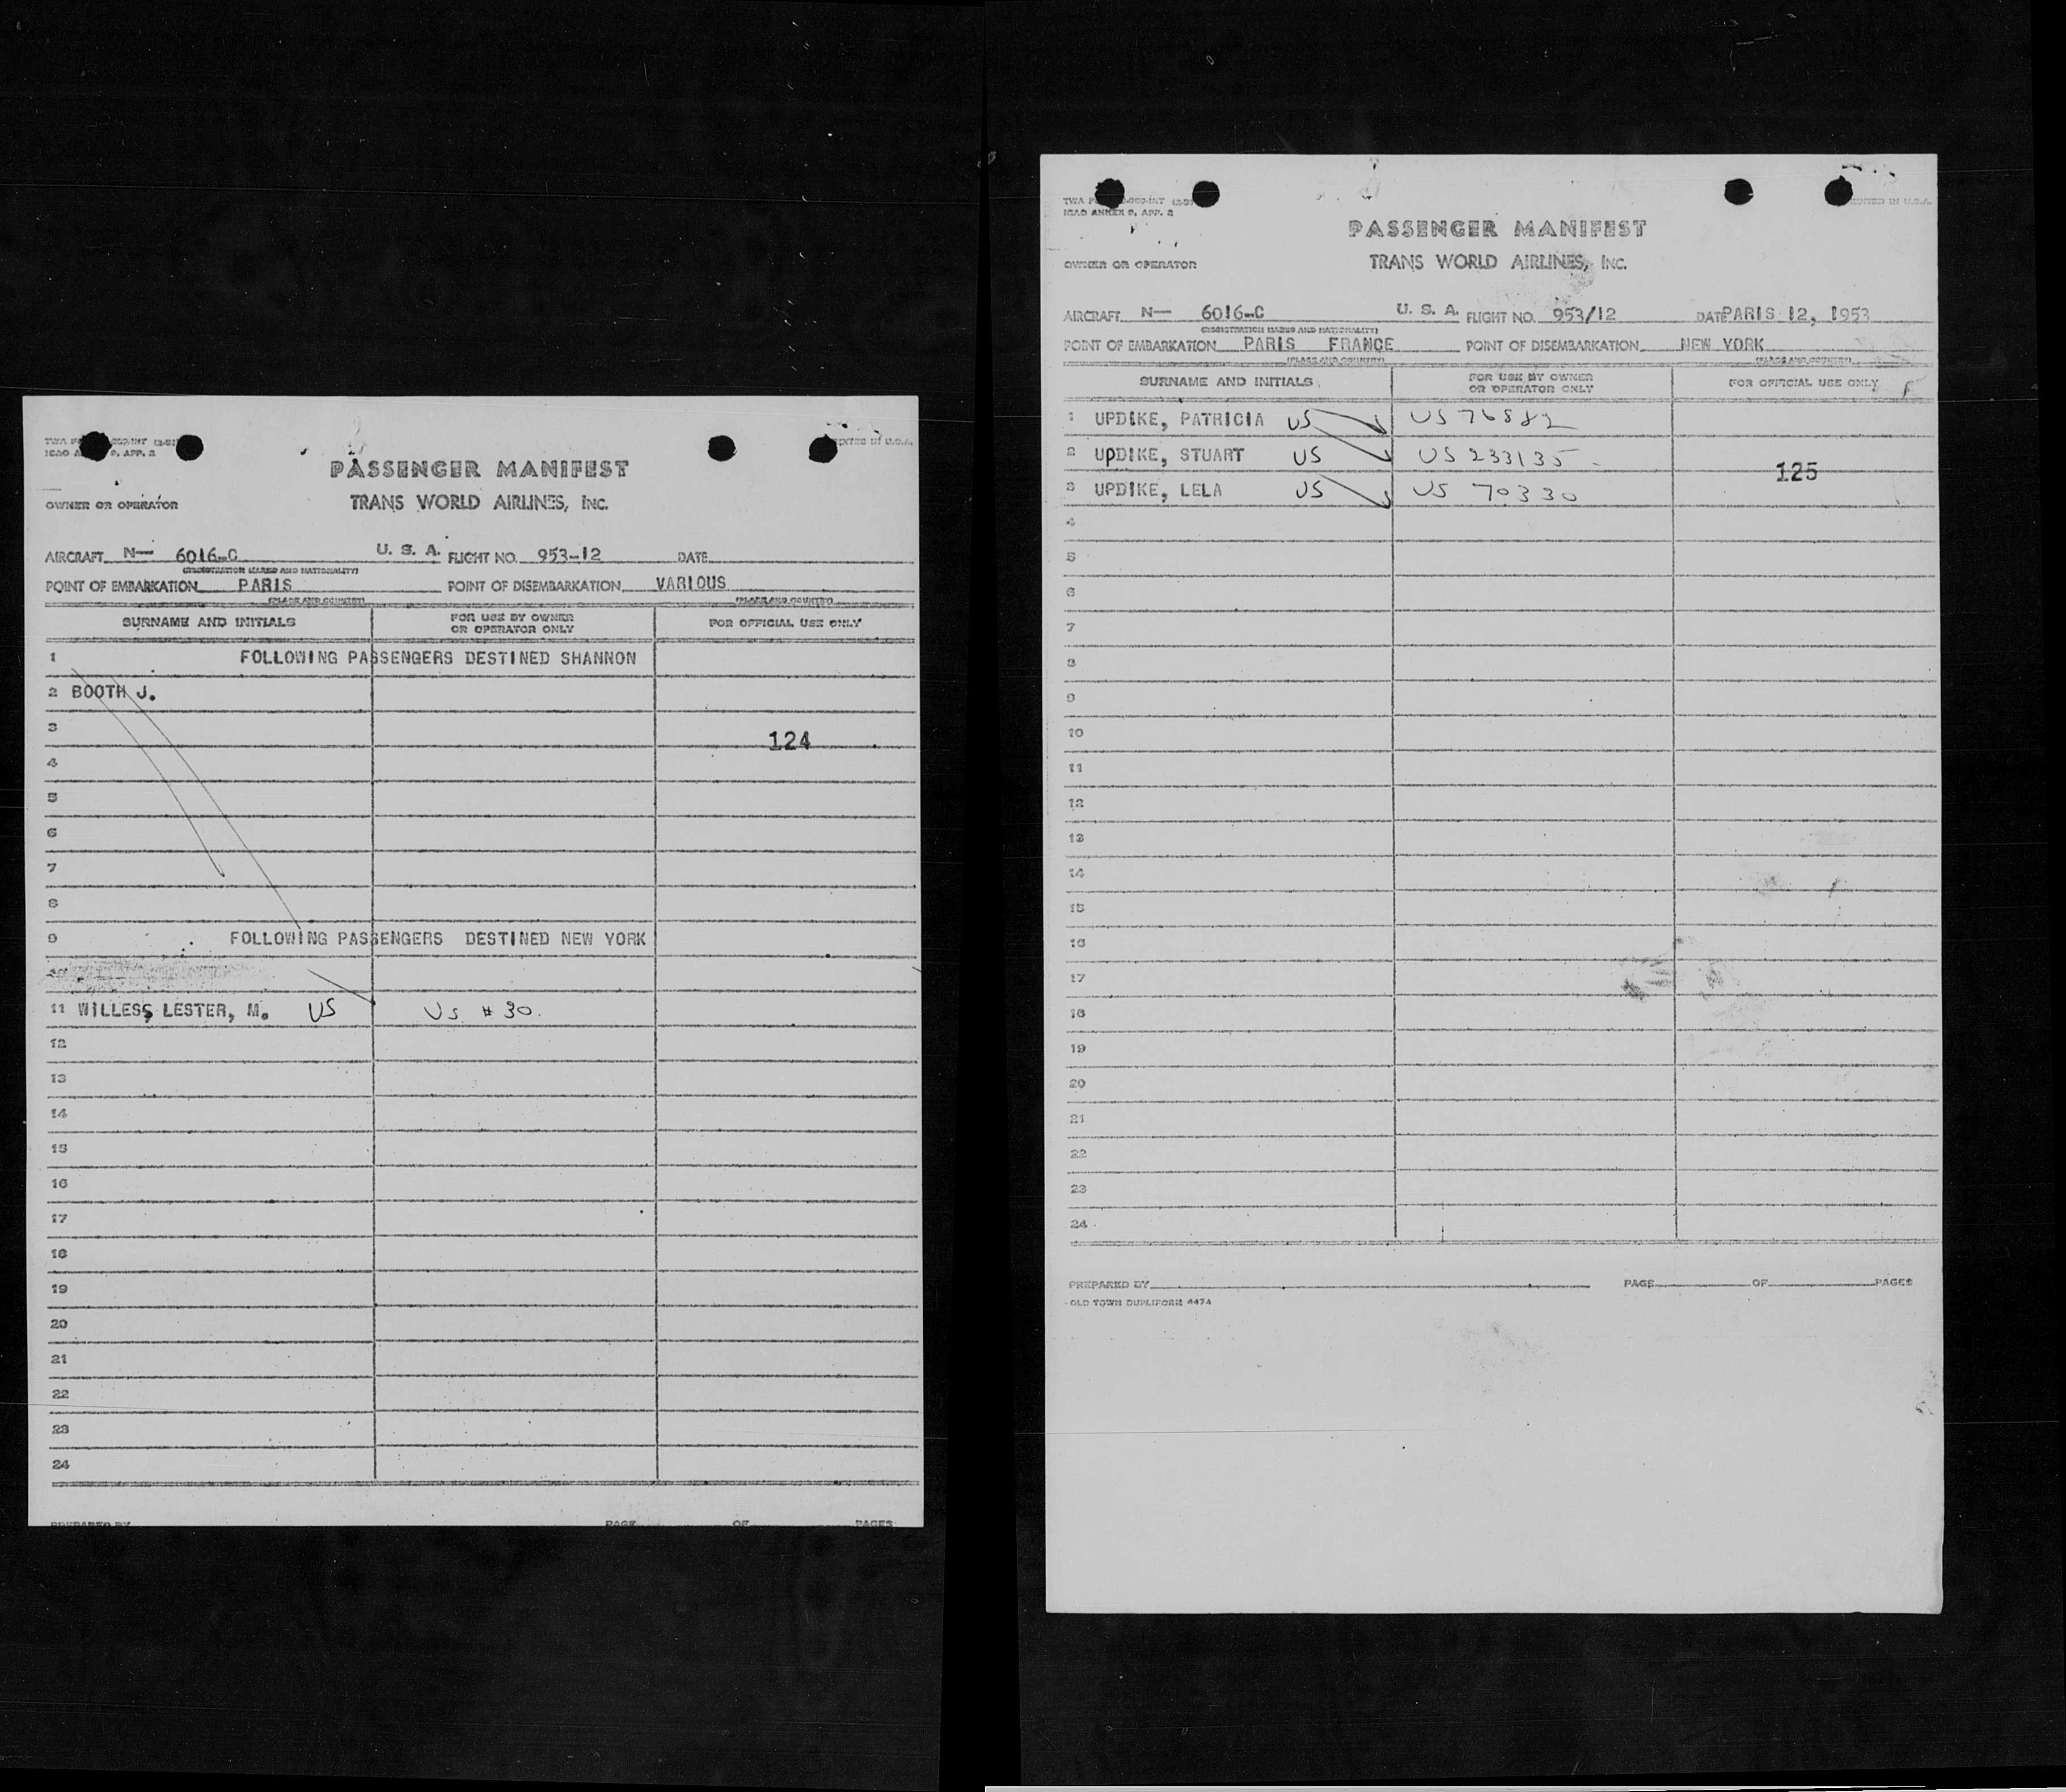 PASSENGER MANIFEST
OWNER OR OPERATOR
TRANS WORLD AIRLINES, INC.
AIRCRAFT N— 6016-C U. S. A. FLIGHT NO. 953-12 DATE
(REGISTRATION MARKS AND NATIONALITY)
POINT OF EMBARKATION PARIS POINT OF DISEMBARKATION VARIOUS
(PLACE AND COUNTRY) (PLACE AND COUNTRY)
SURNAME AND INITIALS FOR USE BY OWNER OR OPERATOR ONLY FOR OFFICIAL USE ONLY
1 FOLLOWING PASSENGERS DESTINED SHANNON
2 BOOTH J.
3
124
4
5
6
7
8
9 FOLLOWING PASSENGERS DESTINED NEW YORK
11 WILLESS LESTER, M. US US #30.
12
13
14
15
16
17
18
19
20
21
22
23
24
PREPARED BY PAGE OF PAGES
ICAO ANNEX 9, APP. 2
PASSENGER MANIFEST
OWNER OR OPERATOR
TRANS WORLD AIRLINES, INC.
AIRCRAFT N— 6016-C U. S. A. FLIGHT NO. 953/12 DATE PARIS 12, 1953
(REGISTRATION MARKS AND NATIONALITY)
POINT OF EMBARKATION PARIS FRANCE POINT OF DISEMBARKATION NEW YORK
(PLACE AND COUNTRY) (PLACE AND COUNTRY)
SURNAME AND INITIALS FOR USE BY OWNER OR OPERATOR ONLY FOR OFFICIAL USE ONLY
1 UPDIKE, PATRICIA US US 76882
2 UPDIKE, STUART US US 233135
125
3 UPDIKE, LELA US US 70330
4
5
6
7
8
9
10
11
12
13
14
15
16
17
18
19
20
21
22
23
24
PREPARED BY PAGE OF PAGES
OLD TOWN DUPLIFORM #474